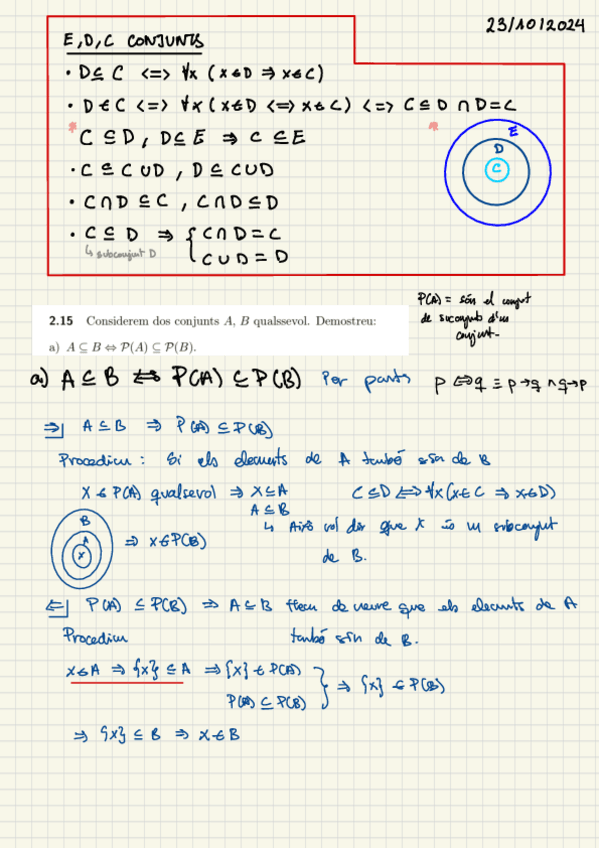 23/10/2024
E, D, C CONJUNTS
• D ⊆ C <=> ∀x (x∈D ⇒ x∈C)
• D ∈ C <=> ∀x (x∈D <=> x∈C) <=> C ⊆ D ∩ D = C
* C ⊆ D, D ⊆ E ⇒ C ⊆ E *
• C ⊆ C∪D, D ⊆ C∪D
• C∩D ⊆ C, C∩D ⊆ D
• C ⊆ D ⇒ { C∩D = C
↳ subconjunt D
C∪D = D
E
D
C
P(A) = són el conjunt
de suconjunts d'un
conjunt.
2.15 Considerem dos conjunts A, B qualssevol. Demostreu:
a) A ⊆ B ⇔ P(A) ⊆ P(B).
a) A ⊆ B ⇔ P(A) ⊆ P(B) Per parts p ⇔ q ≡ p→q ∧ q→p
⇒| A ⊆ B ⇒ P(A) ⊆ P(B)
Procedim: Si els elements de A també són de B
X ∈ P(A) qualsevol ⇒ X ⊆ A C ⊆ D ⇔ ∀x (x∈C ⇒ x∈D)
A ⊆ B
↳ Això vol dir que X és un subconjunt
de B.
B
A
X
⇒ X ∈ P(B)
⇐| P(A) ⊆ P(B) ⇒ A ⊆ B Hem de veure que els elements de A
Procedim també són de B.
x∈A ⇒ {x} ⊆ A ⇒ {x} ∈ P(A)
P(A) ⊆ P(B) } ⇒ {x} ∈ P(B)
⇒ {x} ⊆ B ⇒ x∈B